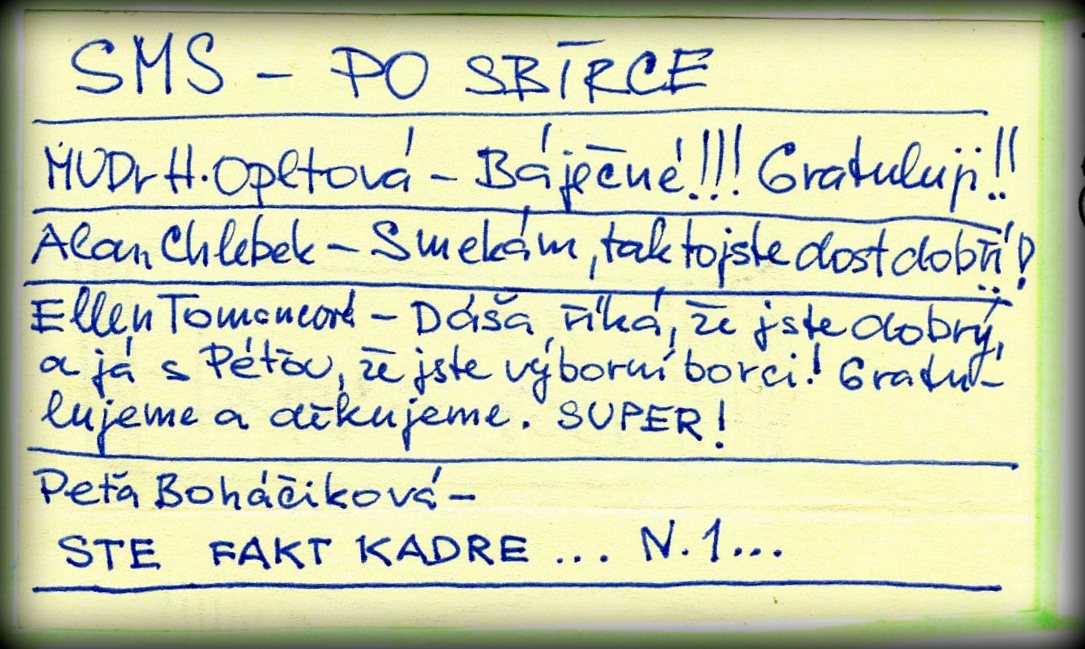 SMS - PO SBÍRCE
MUDr H. Opltová - Báječné!!! Gratuluji!!
Alan Chlebek - Smekám, tak to jste dost dobří!
Ellen - Dáša říká, že jste dobrý,
a já s Péťou, že jste výborní borci! Gratu-
lujeme a děkujeme. SUPER!
Peťa Boháčiková -
STE FAKT KADRE ... N.1...